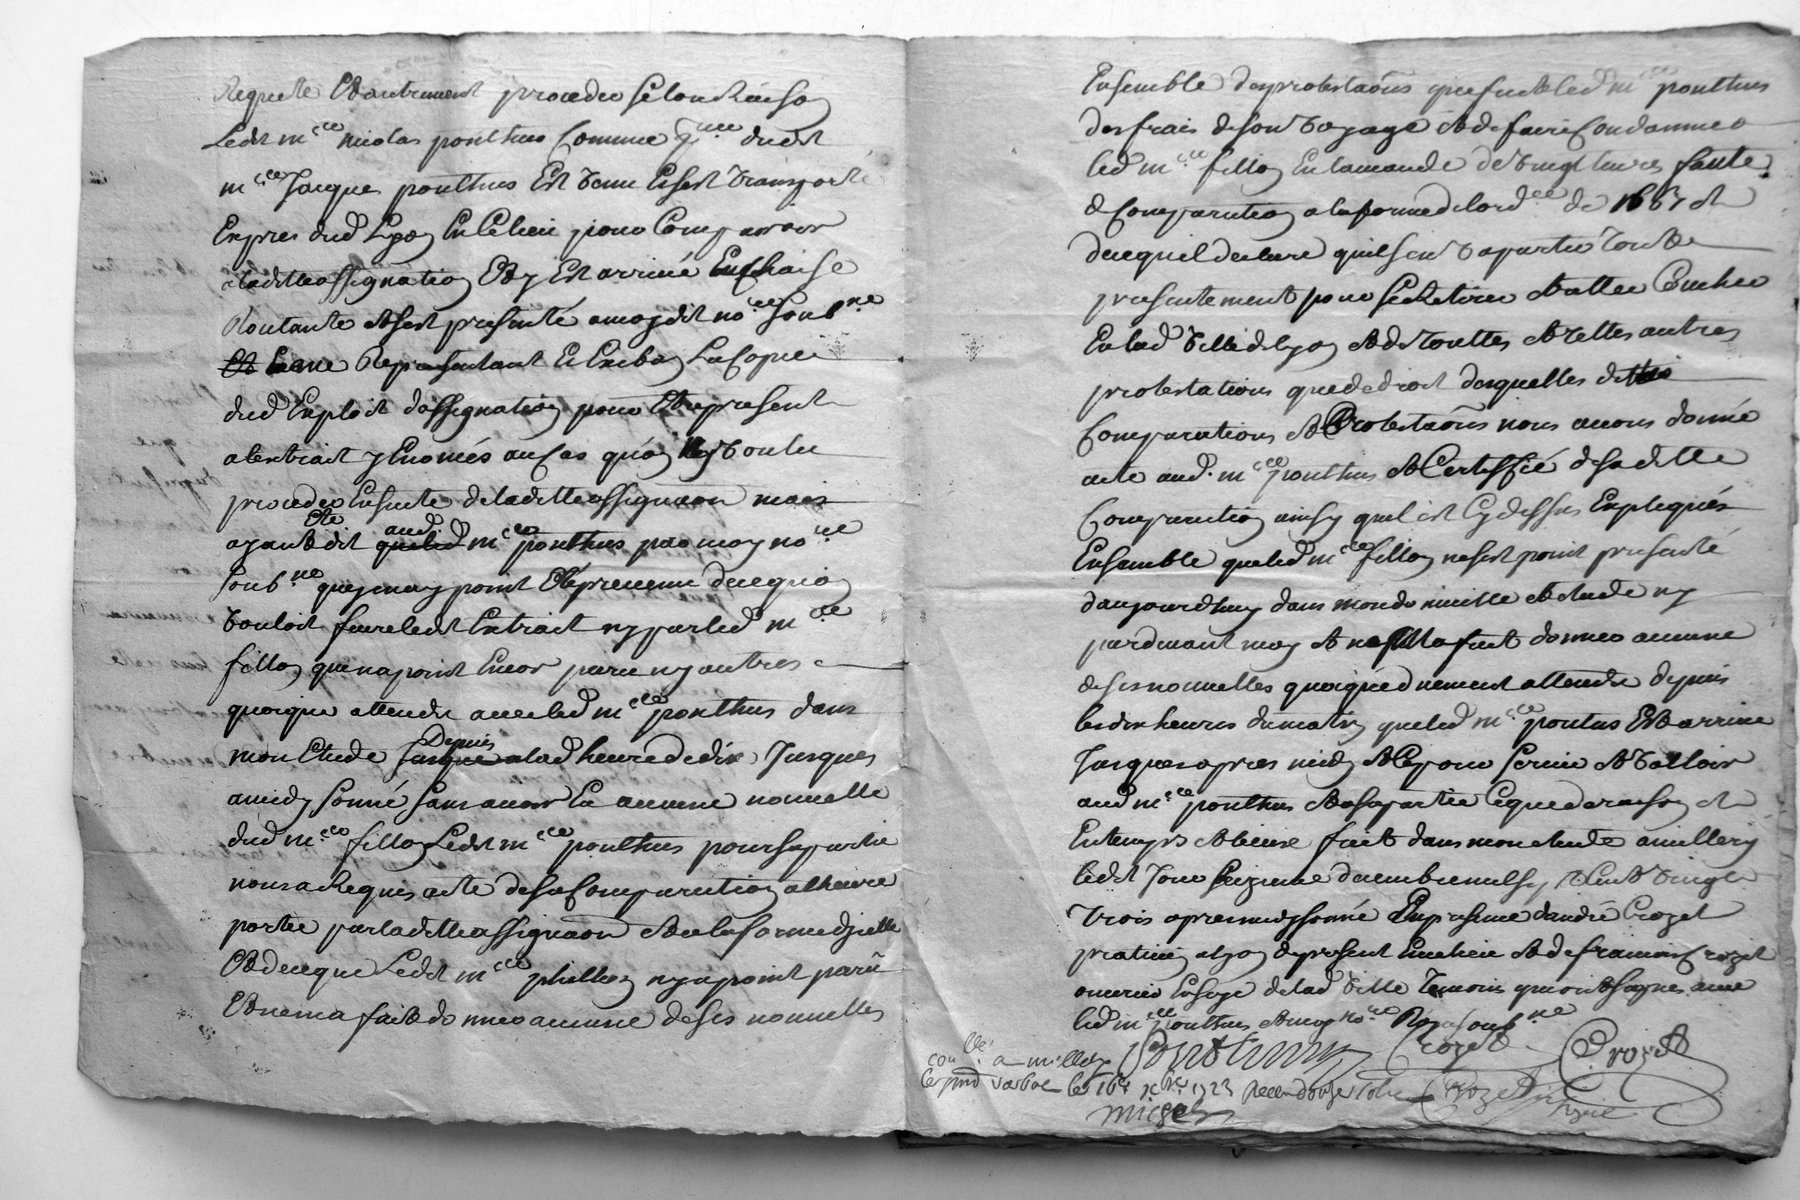 Requete Et autrement proceder selon Raison
Ledit mce nicolas ponthus Comme dudit
mce Jacques ponthus Est venu Et sest transporté
Expres dud Lyon En Ce lieu pour Comparoir
a laditte assignation Et y Est arrivé En chaise
Roulante et sest presenté a moydit nore soubne
Representant Et Exiba La Copie
dud Exploit dassignation pour Etre present
a lextrait y Enoncés au Cas quon y voulu
proceder Ensuite de laditte assignaon mais
ayant Eté dit aud mce ponthus par moy nore
soubne que je nay point Eté prevenu de ce quon
vouloit faire ledit Extrait ny par led mce
fillon que na point Encor paru ny autres
quoique attendu avec led mce ponthus dans
mon Etude Depuis a lad heure de dix Jusques
a midy sonné sans avoir Eu aucune nouvelle
dud mce fillon Ledit mce ponthus pour sa partie
nous a Requis acte de sa Comparution a lheure
portée par laditte assignaon Et de la forme dicelle
Et de ce que Ledit mce phillon ny a point parû
Et ne ma fait donner aucune de ses nouvelles
Ensemble des protestaons que fait led mce ponthus
des frais de son voyage et de faire Condamner
led mce fillon En lamande de vingt livres faute
de Comparution a la forme de lordce de 1667 et
de ce quil declare quil sen va partir tout
presentement pour se Retirer et aller Coucher
En lad ville de lyon et de touttes et telles autres
protestations que de droit desquelles dittes
Comparutions et Protestaons nous avons donné
acte aud. mce ponthus et Certiffié de sa ditte
Comparution ainsy quil est Cy dessus Expliqués
Ensemble que led mce fillon ne sest point presenté
daujourdhuy dans mon domicille et etude ny
pardevant moy et ne ma fait donner aucune
de ses nouvelles quoique dument attendu depuis
les dix heures du matin que led mce pontus Est arrivé
Jusques apres midy et Ce pour servir et valloir
aud mce ponthus et a sa partie Ce que de raison et
En temps et lieux fait dans mon etude a millery
ledit Jour seizieme decembre mil sept Cent vingt
trois apres midy sonné En presence dandré Crozet
praticien a lyon de present En ce lieu et de francois Crozet
ouvrier En soye de lad ville temoins qui ont signés avec
led mce ponthus et moy nore Royal soubne
Conllé a millery Ponthus Crozet Crozet
le pnt verbal le 16e xbre 1723 Recu douze sols Crozet
miege